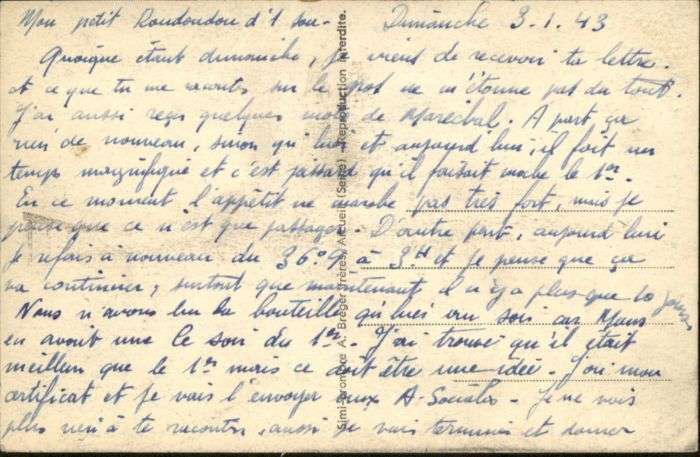 Mon petit Roudoudou d'1 sou - Dimanche 3.1.43
Quoique étant dimanche, je viens de recevoir ta lettre.
et ce que tu me racontes sur le pos ne m'étonne pas du tout.
J'ai aussi reçu quelques mots de Maréchal. A part ça
rien de nouveau, sinon qu'hier et aujourd'hui, il fait un
temps magnifique et c'est qu'il faisait moche le 1er.
En ce moment l'appétit ne marche pas très fort, mais je
pense que ce n'est que passager. D'autre part, aujourd'hui
je refais à nouveau du 36°9 à 3H et je pense que ça
va continuer, surtout que maintenant il n'y a plus que 10 jours
Nous n'avons bu la bouteille qu'hier au soir car Mans
en avait une le soir du 1er. J'ai trouvé qu'il était
meilleur que le 1er mais ce doit être une idée. J'ai mon
certificat et je vais l'envoyer aux A-Sociales. Je ne vois
plus rien à te raconter, aussi je vais terminer et donner
Simi-Bromure A. Breger frères, Arcueil (Seine). Reproduction interdite.